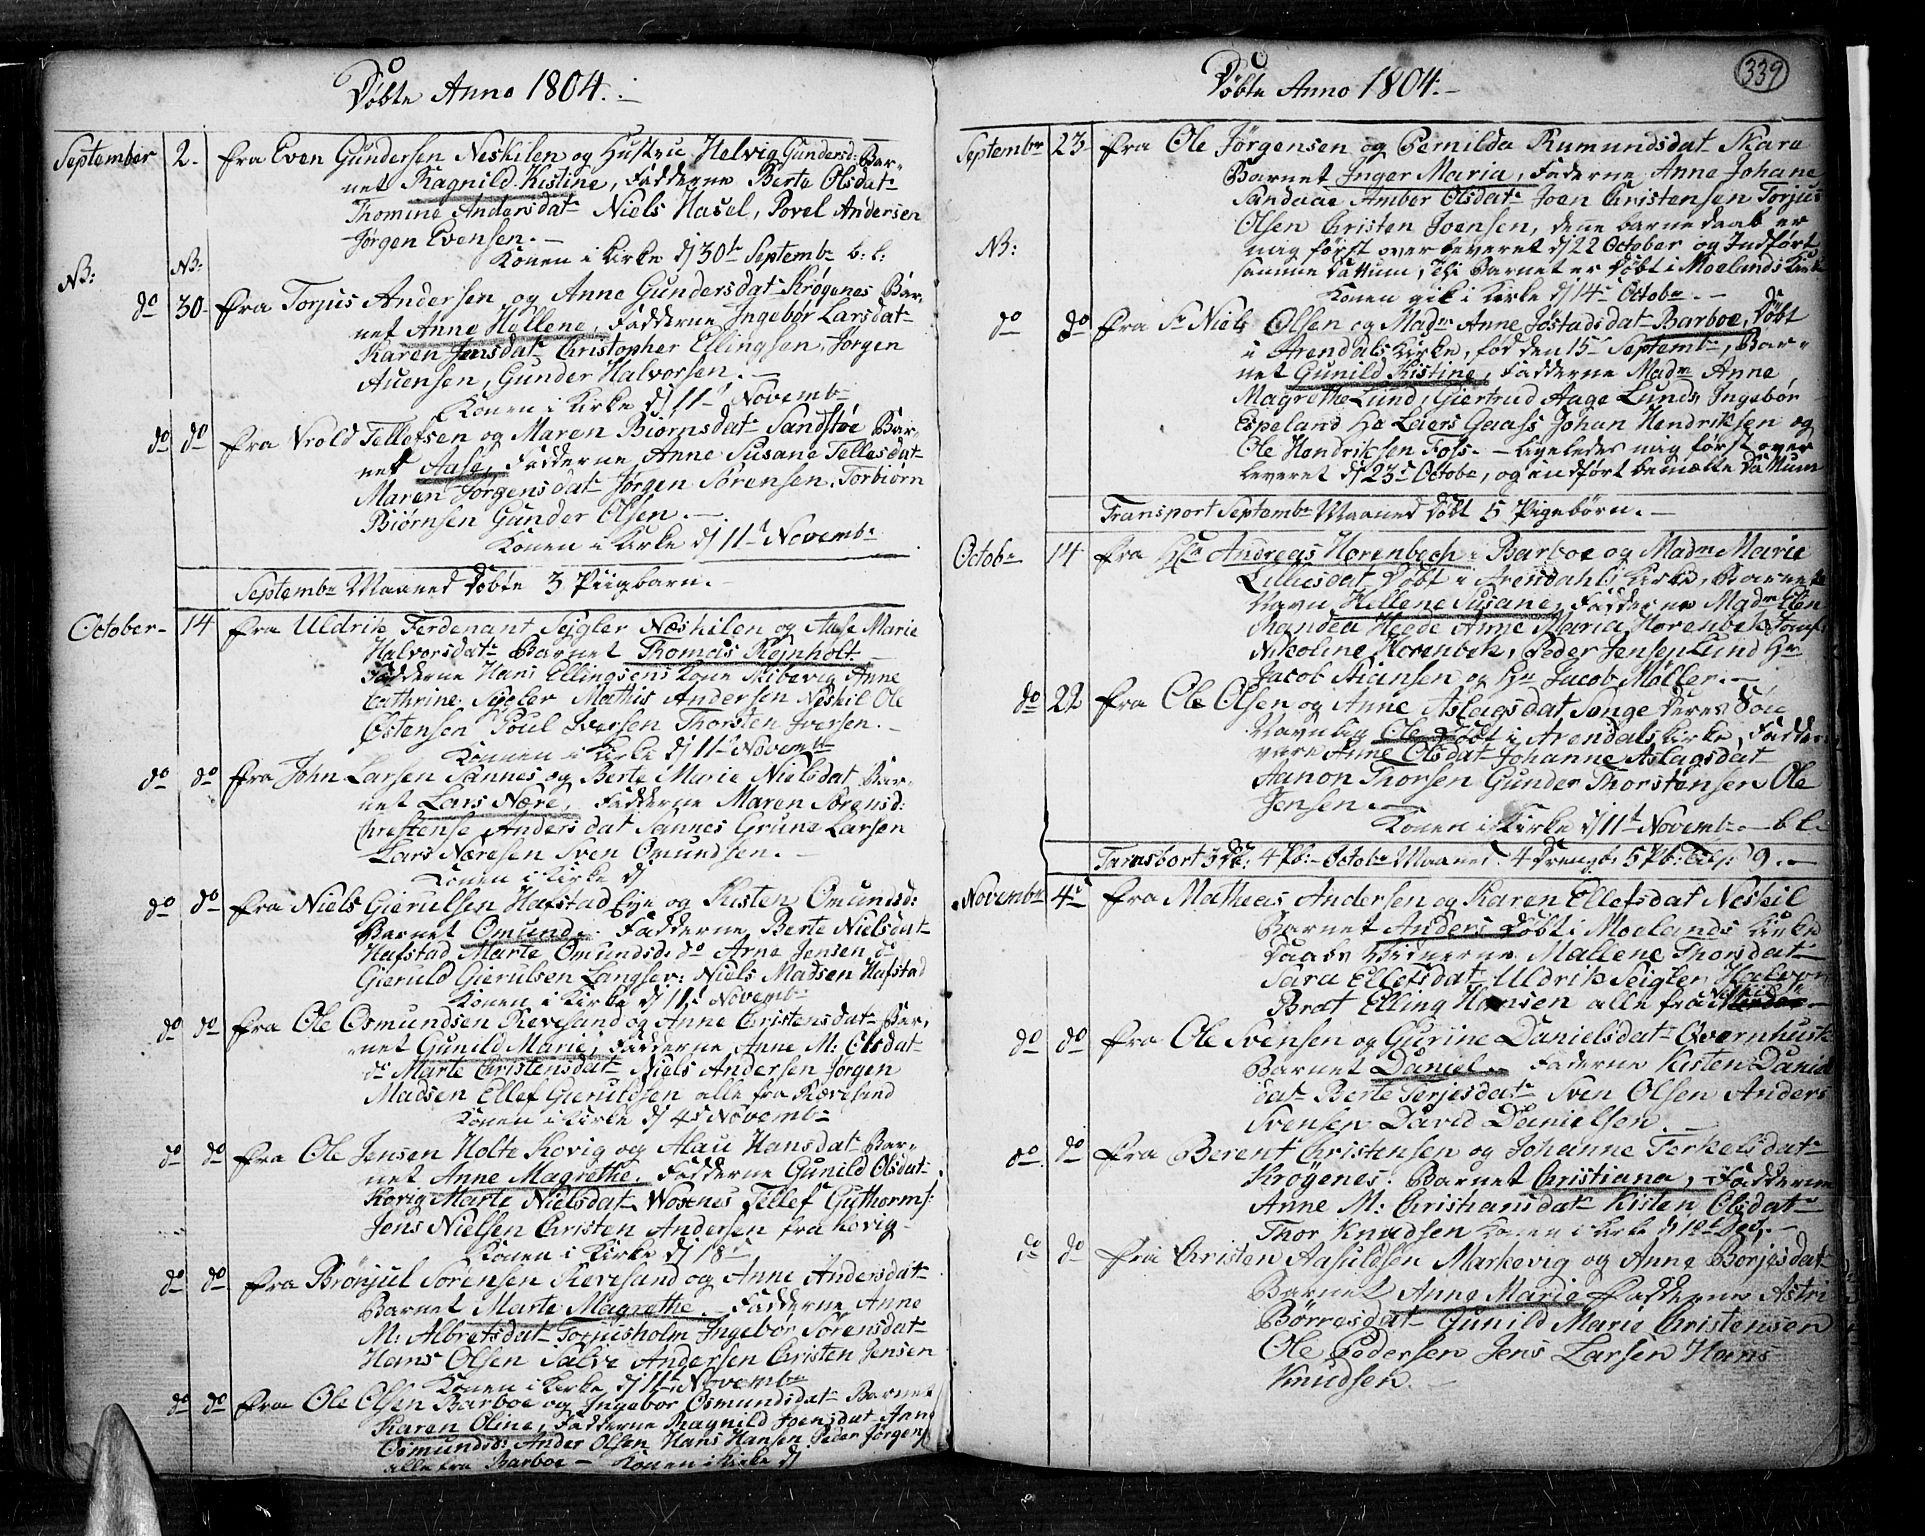 Døbte Anno 1804.
September 2. fra Even Gundersen Neskilen og Hustru Helvig Gundersd: Bar-
net Ragnild Kistine, Fadderne Berte Olsdatr
Thomine Andersdatr Niels Hasel, Povel Andersen
Jørgen Evensen.
Konen i Kirke dj 30te Septembr b: l:
NB: NB:
do 30 fra Torjus Andersen og Anne Gundersdatr Krøgenes Bar-
net Anne Hellene, Fadderne Ingebør Larsdatr
Karen Jensdatr Christopher Ellingsen, Jørgen
Avensen, Gunder Halvorsen.
Konen i Kirke dj 11te Novembr
do do fra Vrold Tellefsen og Maren Biørnsdatr Sandstøe Bar-
net Aase, Fadderne Anne Susane Tellesdatr
Maren Jørgensdatr Jørgen Sørensen, Torbiørn
Biørnsen Gunder Olsen.
Konen i Kirke dj 11te Novembr
Septembr Maaned døbte 3 Piigbarn.
October 14 fra Uldrik Ferdenant Sejgler Næskilen og Aase Marie
Halvorsdatr Barnet Thomas Rejnholt
Fadderne Hans Ellingsens Kone Skibevig Anne
Cathrine Sejgler Mathis Andersen Neskil Ole
Østensen Poul Iversen Thorsten Iversen.
Konnen i Kirke dj 11te Novembr
do do fra John Larsen Sannes og Berte Marie Nielsdat Bar-
net Lars Nære, Fadderne Maren Sørensd:
Chrestense Andersdat Sannes Grune Larsen
Lars Næresen Sven Omundsen.
Konen i Kirke dj
do do fra Niels Gierulsen Hafstad Eye og Kisten Omundsd:
Barnet Omund. Fadderne Berte Nielsdat
Hafstad Marte Omundsd: do Arne Jensen do
Gieruld Gierulsen Langsev: Niels Madsen Hafstad
Konen i Kirke dj 11te Novembr
do do fra Ole Osmundsen Revesand og Anne Christensdatr Bar-
net Gunild Marie, Fadderne Anne M: Olsdatr
do Marte Christensdatr Niels Andersen Jørgen
Madsen Ellef Gieruldsen alle fra Rævesand
Konen i Kirke dj 4de Novembr
do do fra Ole Jensen Holte Kovig og Alau Hansdatr Bar-
net Anne Magrethe. Fadderne Gunild Olsdatr
Kovig Marte Nielsdatr Woxnes Tellef Guthorms:
Jens Nielsen Christen Andersen fra Kovig
Konen i Kirke dj 18
do do fra Brønjul Sørensen Revesand og Anne Andersdatr
Barnet Marte Magrethe. Fadderne Anne
M: Albretsdatr Torjusholm Ingebør Sørensdatr
Hans Olsen Salve Andersen Christen Jensen
Konen i Kirke dj 11te Novembr
do do fra Ole Olsen Barboe og Ingebor Osmundsdatr Barnet
Karen Oline, Fadderne Ragnild Joensdat Anne
Osmundsd: Ander Olsen Hans Hansen Peder Jørgens
alle fra Barboe - Konen i Kirke dj
339
Døbte Anno 1804.
Septembr 23 fra Ole Jørgensen og Pernilda Rumundsdat Skare
Barnet Inger Maria, Faderne Anne Johane
Sandaae Amber Olsdatr Joen Christensen Torjus
Olsen Christen Joensen, denne barne daab er
NB: mag først over leveret dj 22 October og Indført
samme Dattum, Thi Barnet er Døbt i Moelands Kirke
Konen gik i Kirke dj 14de Octobr.
do do fra Sr Niels Olsen og Madm Anne Jøstadsdat Barboe, Døbt
i Arendals Kirke, fød den 15de Septembr, Bar-
net Gunild Kistine, Fadderne Madm Anne
Magrethe Lund, Giertrud Aage Lunds Ingebør
Espeland Hr Laers Gaass Johan Hendriksen og
Ole Hendriksen Foss. - ligeledes mig først over
leveret dj 23de Octobr, og indført bemælte Dattum
Transport Septembr Maaned døbt 5 Pigebørn.
Octobr 14 fra Hr Andreas Hørenbech i Barboe og Madm Marie
Lilliesdat Døbt i Arendahls Kirke, Barnets
Navn Hellene Susane, Fadderne Madm Elen
Mandea Heede Anne Maria Hørenbek Jomf:
Nikoline Hørenbek, Peder Jensen Lund Hr
Jacob Kiensen og Hr Jacob Møller.
do 22 fra Ole Olsen og Anne Aslagsdat Songe deres Søn
Navnlig Ole døbt i Arendals Kirke, Fadder-
vere Anne Olsdat Johanne Aslagsdat
Aanon Thorsen Gunder Thorstensen Ole
Jensen.
Konen i Kirke dj 11te Novembr. b l.
Transport 3 D: 4 Pb: Octobr Maaned 4 drengb: 5 Pb: Tils: 9.
Novembr 4de fra Matheas Andersen og Karen Ellefsdat Neskil
Barnet Anders Døbt i Moelands Kirke
Daabs Vidnerne Mallene Thorsdatr
Sara Ellefsdat Uldrik Seigler Halvor
Brat Elling Hansen alle fra Neskil
do do fra Ole Svensen og Gurine Danielsdatr Qvernhusk
Barnet Daniel. Faderne Kisten Daniel
datr Berte Terjesdatr Sven Olsen Anders
Svensen David Danielsen.
do do fra Berent Christensen og Johanne Terkelsdatr
Krøgenes. Barnet Christiana, Fadderne
Anne M: Christiansdatr Kisten Olsdatr
Thor Knudsen Konen i Kirke dj
do do fra Christen Aasuldsen Markevig og Anne Børjesdatr
Barnet Anne Marie Fadderne Astri
Børresdatr Gunild Marie Christensen
Ole Pedersen Jens Larsen Hans
Knudsen.